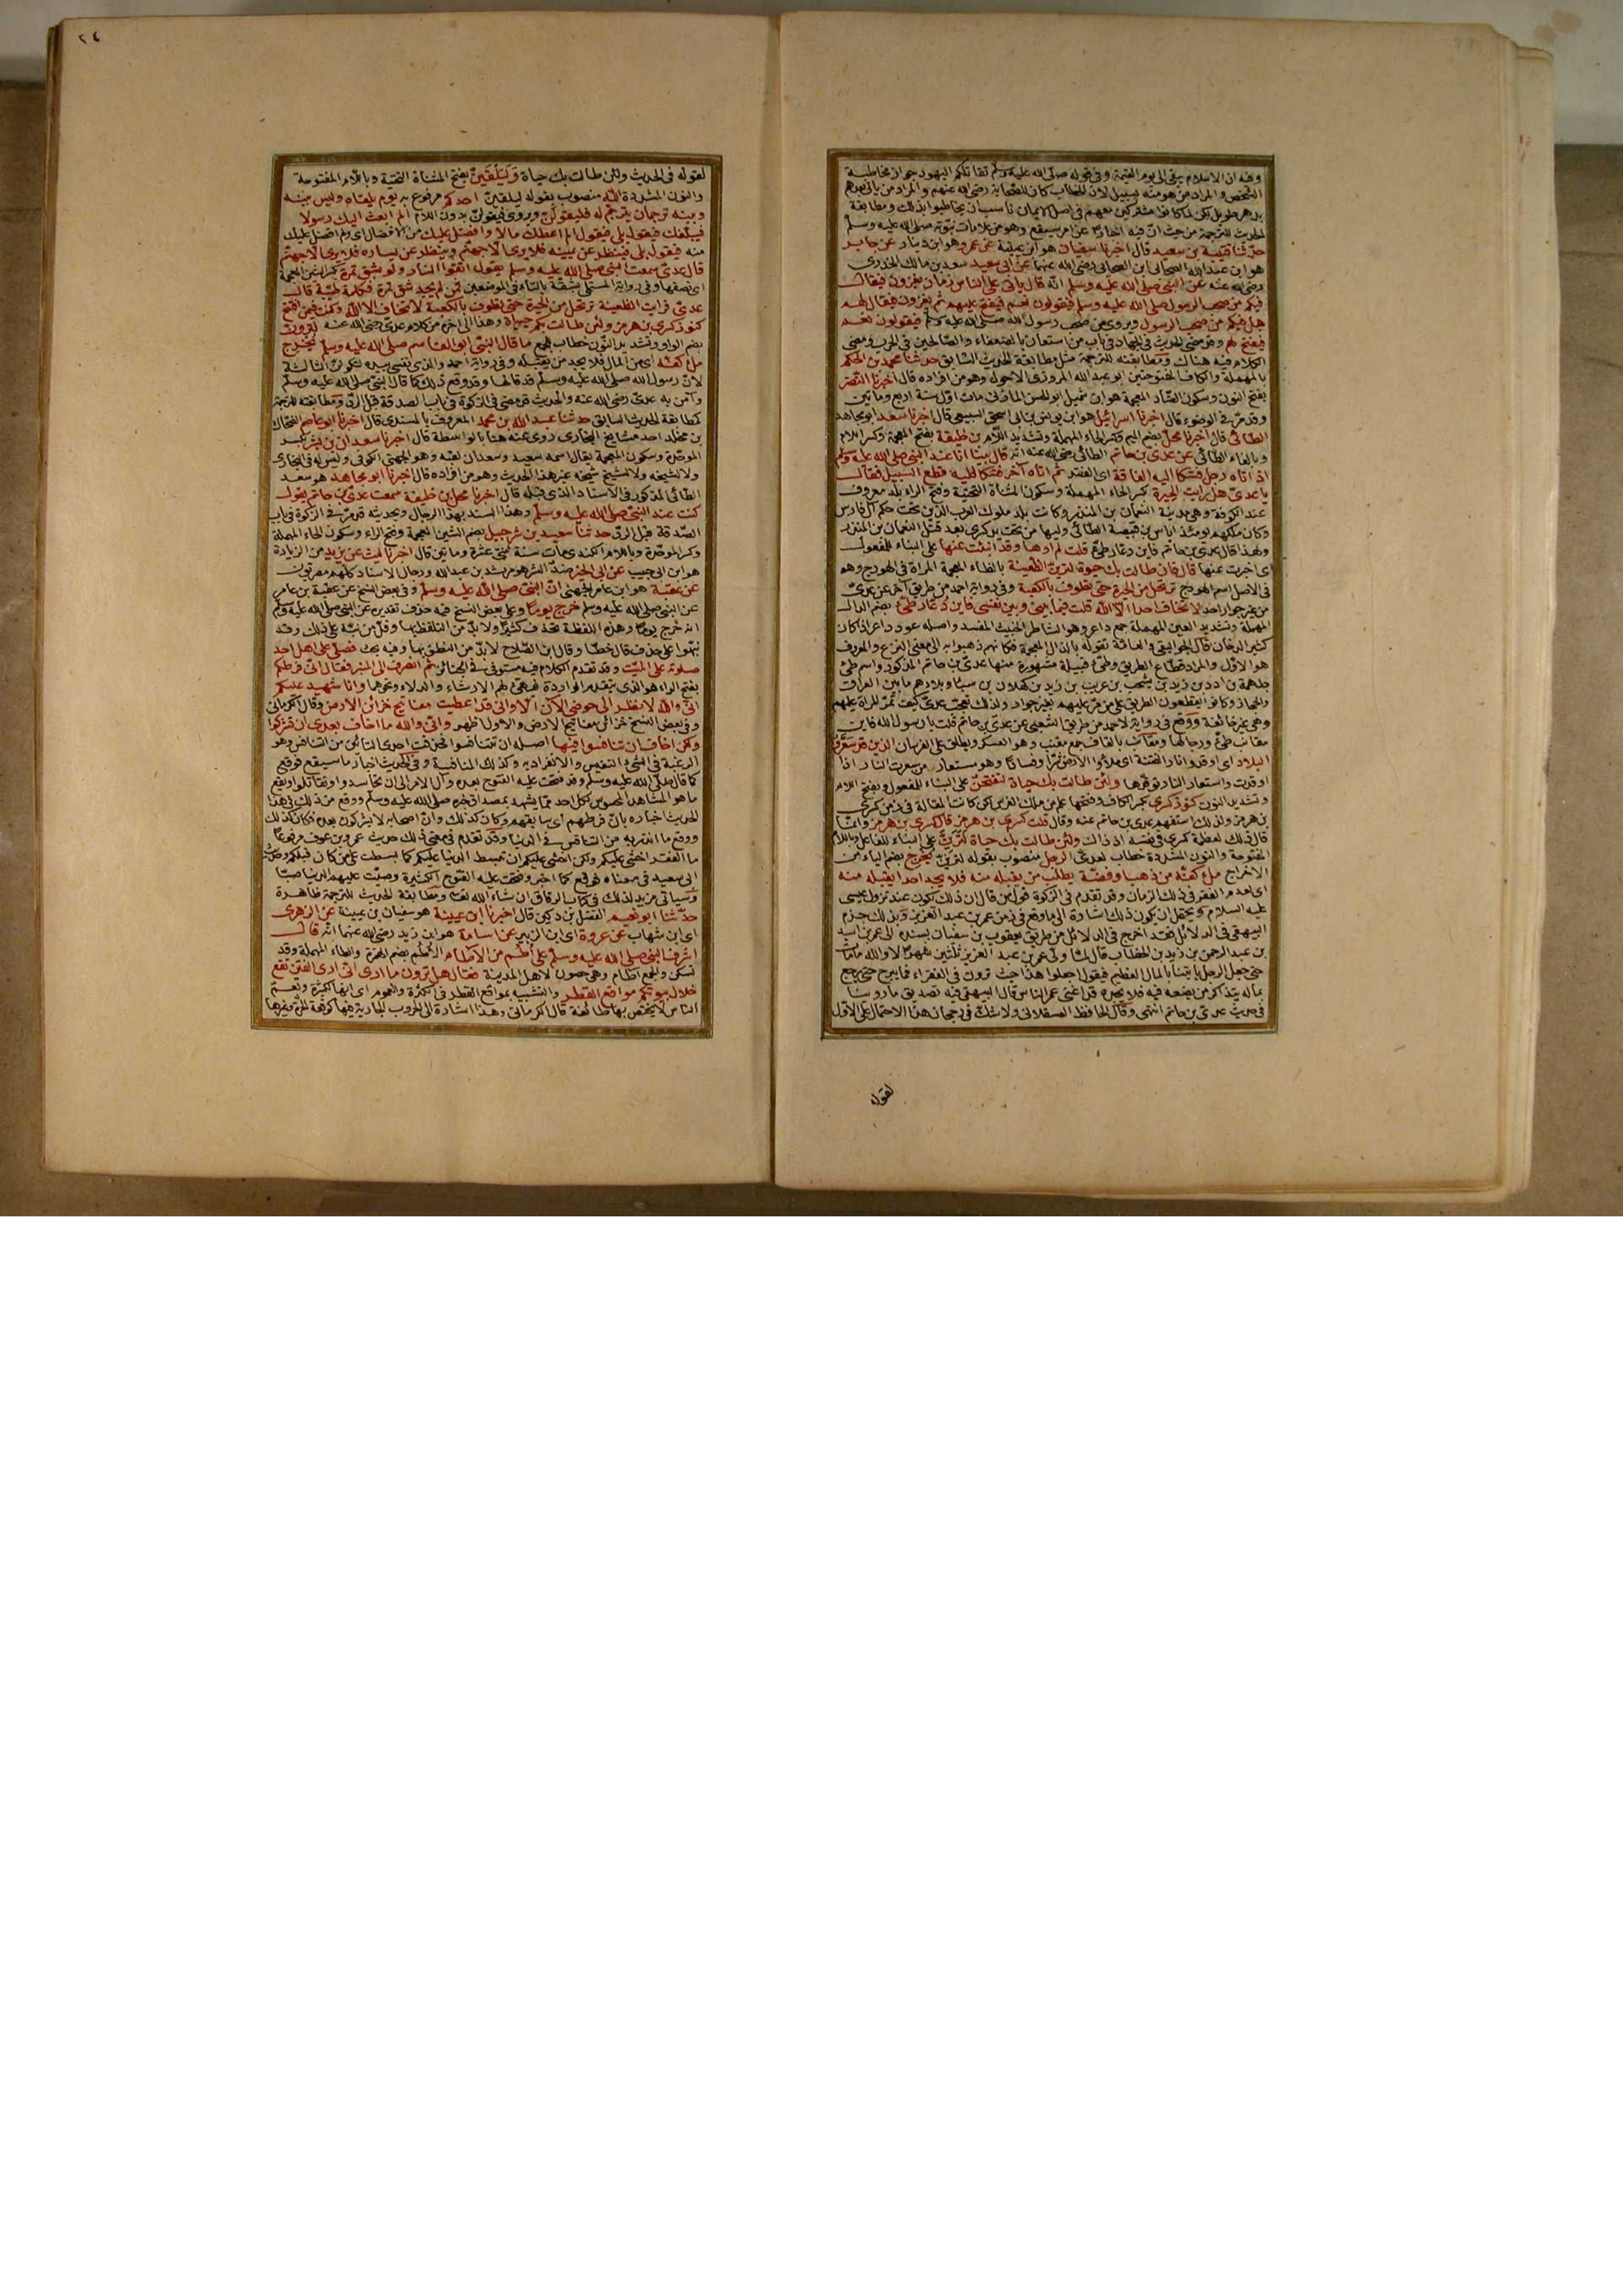 وفيه ان الاسلام يبقى الى يوم القيمة وفى قوله صلى الله عليه وسلم تقاتلكم اليهود جواز مخاطبة
الشخص والمراد من هو منه بسبيل لان الخطاب كان للصحابة رضى الله عنهم والمراد من ياتى بعدهم
بدهر طويل لكن لما كانوا مشتركين معهم فى اصل الايمان ناسب ان يخاطبوا بذلك ومطابقة
الحديث للترجمة من حيث ان فيه اخبارا عن امر سيقع وهو من علامات نبوته صلى الله عليه وسلم
حدثنا قتيبة بن سعيد قال اخبرنا سفيان هو ابن عيينة عن عمرو هو ابن دينار عن جابر
هو ابن عبد الله الصحابى ابن الصحابى رضى الله عنهما عن ابى سعيد سعد بن مالك الخدرى
رضى الله عنه عن النبى صلى الله عليه وسلم انه قال ياتى على الناس زمان يغزون فيقال
فيكم من صحب الرسول صلى الله عليه وسلم فيقولون نعم فيفتح عليهم ثم يغزون فيقال لهم
هل فيكم من صحب من صحب الرسول ويروى من صحب رسول الله صلى الله عليه وسلم فيقولون نعم
فيفتح لهم وقد مضى الحديث فى الجهاد فى باب من استعان بالضعفاء والصالحين فى الحرب ومضى
الكلام فيه هناك ومطابقته للترجمة مثل مطابقة الحديث السابق حدثنا محمد بن الحكم
بالمهملة والكاف المفتوحتين ابو عبد الله المروزى الاحول وهو من افراده قال اخبرنا النضر
بفتح النون وسكون الضاد المعجمة هو ابن شميل ابو الحسن المازنى مات اول سنة اربع ومأتين
وقد مر فى الوضوء قال اخبرنا اسرائيل هو ابن يونس بن ابى اسحق السبيعى قال اخبرنا سعد ابو مجاهد
الطائى قال اخبرنا محل بضم الميم وكسر الحاء المهملة وتشديد اللام بن خليفة بفتح المعجمة وكسر اللام
وبالفاء الطائى عن عدى بن حاتم الطائى رضى الله عنه انه قال بينا انا عند النبى صلى الله عليه وسلم
اذ اتاه رجل فشكا اليه الفاقة اى الفقر ثم اتاه آخر فشكا اليه قطع السبيل فقال
يا عدى هل رايت الحيرة بكسر الحاء المهملة وسكون المثناة التحتية وفتح الراء بلد معروف
عند الكوفة وهى مدينة النعمان بن المنذر وكانت بلد ملوك العرب الذين تحت حكم آل فارس
وكان ملكهم يومئذ اياس بن قبيصة الطائى وليها من تحت يد كسرى بعد قتل النعمان بن المنذر
ولهذا قال عدى بن حاتم فاين دعار طيئ قلت لم ارها وقد انبئت عنها على البناء للمفعول
اى اخبرت عنها قال فان طالت بك حيوة لترين الظعينة بالظاء المعجمة المراة فى الهودج وهو
فى الاصل اسم الهودج ترتحل من الحيرة حتى تطوف بالكعبة وفى رواية احمد من طريق آخر عن عدى
من غير جوار احد لا تخاف احدا الا الله قلت فيما بينى وبين نفسى فاين دعار طيئ بضم الدال
المهملة وتشديد العين المهملة جمع داعر وهو الشاطر الخبيث المفسد واصله عود داعر اذا كان
كثير الدخان قال الجواليقى والعامة تقوله بالذال المعجمة فكانهم ذهبوا به الى معنى الفزع والمعروف
هو الاول والمراد قطاع الطريق وطيئ قبيلة مشهورة منها عدى بن حاتم المذكور واسم طيئ
جلهمة بن ادد بن زيد بن يشجب بن عريب بن زيد بن كهلان بن سبأ وبلادهم ما بين العراق
والحجاز وكانوا يقطعون الطريق على من مر عليهم بغير جوار ولذلك تعجب عدى كيف تمر المرأة عليهم
وهى غير خائفة ووقع فى رواية لاحمد من طريق الشعبى عن عدى بن حاتم قلت يا رسول الله فاين
مقانب طيئ ورجالها ومقانب بالقاف جمع مقنب وهو العسكر ويطلق على الفرسان الذين قد سعروا
البلاد اى اوقدوا نار الفتنة اى ملأوا الارض شرا وفسادا وهو مستعار من سعرت النار اذا
اوقدت واستعار النار توقدها ولئن طالت بك حياة لتفتحن على البناء للمفعول وبفتح اللام
وتشديد النون كنوز كسرى بكسر الكاف وفتحها علم من ملك الفرس لكن كانت المقالة فى زمن كسرى
بن هرمز ولذلك استفهم عدى بن حاتم عنه وقال قلت كسرى بن هرمز قال كسرى بن هرمز وانما
قال ذلك لعظمة كسرى فى نفسه اذ ذاك ولئن طالت بك حياة لترين على البناء للفاعل وباللام
المفتوحة والنون المشددة خطاب لعدى الرجل منصوب بقوله لترين يخرج بضم الياء من
الاخراج ملء كفه من ذهب او فضة يطلب من يقبله منه فلا يجد احدا يقبله منه
اى لعدم الفقر فى ذلك الزمان وقد تقدم فى الزكوة قول من قال ان ذلك يكون عند نزول عيسى
عليه السلام ويحتمل ان يكون ذلك اشارة الى ما وقع فى زمن عمر بن عبد العزيز وبذلك جزم
البيهقى فى الدلائل فقد اخرج فى الدلائل من طريق يعقوب بن سفيان بسنده الى عمر بن اسيد
بن عبد الرحمن بن زيد بن الخطاب قال انما ولى عمر بن عبد العزيز ثلثين شهرا لا والله ما مات
حتى جعل الرجل ياتينا بالمال العظيم فيقول اجعلوا هذا حيث ترون فى الفقراء فما يبرح حتى يرجع
بماله يتذاكر من يضعه فيه فلا يجده قد اغنى عمر الناس قال البيهقى فيه تصديق ما روينا
فى حديث عدى بن حاتم انتهى وقال الحافظ العسقلانى ولا شك فى رجحان هذا الاحتمال على الاول
لقوله
٢٤
لقوله فى الحديث ولئن طالت بك حياة وليلقين بفتح المثناة التحتية وباللام المفتوحة
والنون المشددة الله منصوب بقوله ليلقين احدكم مرفوع به يوم يلقاه وليس بينه
وبينه ترجمان يترجم له فليقولن ويروى فيقولن بدون اللام الم ابعث اليك رسولا
فيبلغك فيقول بلى فيقول الم اعطك مالا وافضل عليك من الافضال اى ولم افضل عليك
منه فيقول بلى فينظر عن يمينه فلا يرى الا جهنم وينظر عن يساره فلا يرى الا جهنم
قال عدى سمعت النبى صلى الله عليه وسلم يقول اتقوا النار ولو بشق تمرة بكسر الشين المعجمة
اى نصفها وفى رواية المستملى بشقة بالتاء فى الموضعين فمن لم يجد شق تمرة فبكلمة طيبة قال
عدى فرايت الظعينة ترتحل من الحيرة حتى تطوف بالكعبة لا تخاف الا الله وكنت فيمن افتتح
كنوز كسرى بن هرمز ولئن طالت بكم حياة وهذا الى آخره من كلام عدى رضى الله عنه لترون
بضم الواو وتشديد النون خطاب للجمع ما قال النبى ابو القاسم صلى الله عليه وسلم يخرج
ملء كفه اى من المال فلا يجد من يقبله وفى رواية احمد والذى نفسى بيده لتكونن الثالثة
لان رسول الله صلى الله عليه وسلم قد قالها وقد وقع ذلك كما قال النبى صلى الله عليه وسلم
وآمن به عدى رضى الله عنه والحديث قد مضى فى الزكوة فى باب الصدقة قبل الرد ومطابقته للترجمة
كمطابقة الحديث السابق حدثنا عبد الله بن محمد المعروف بالمسندى قال اخبرنا ابو عاصم الضحاك
بن مخلد احد مشايخ البخارى روى عنه هنا بالواسطة قال اخبرنا سعدان بن بشر بكسر
الموحدة وسكون المعجمة يقال اسمه سعيد وسعدان لقبه وهو الجهنى الكوفى وليس له فى البخارى
ولا لشيخه ولا لشيخ شيخه غير هذا الحديث وهو من افراده قال اخبرنا ابو مجاهد هو سعد
الطائى المذكور فى الاسناد الذى قبله قال اخبرنا محل بن خليفة سمعت عدى بن حاتم يقول
كنت عند النبى صلى الله عليه وسلم وهذا السند بهذا الرجال وبحديثه قد مر فى الزكوة فى باب
الصدقة قبل الرد حدثنا سعيد بن شرحبيل بضم الشين المعجمة وفتح الراء وسكون الحاء المهملة
وكسر الموحدة وباللام الكندى مات سنة ثنتى عشرة ومأتين قال اخبرنا ليث عن يزيد من الزيادة
هو ابن ابى حبيب عن ابى الخير ضد الشر هو مرثد بن عبد الله ورجال الاسناد كلهم مصريون
عن عقبة هو ابن عامر الجهنى ان النبى صلى الله عليه وسلم وفى بعض النسخ عن عقبة بن عامر
عن النبى صلى الله عليه وسلم خرج يوما وعلى بعض النسخ فيه حذف تقديره عن النبى صلى الله عليه وسلم
انه خرج يوما وهذه اللفظة تحذف كثيرا ولا بد من التلفظ بها وقل من نبه على ذلك وقد
نبهوا على حذف قال خطا وقال ابن الصلاح لا بد من النطق بها وفيه بحث فصلى على اهل احد
صلوته على الميت وقد تقدم الكلام فيه مستوفى فى الجنائز ثم انصرف الى المنبر فقال انى فرطكم
بفتح الراء هو الذى يتقدم الواردة فيهيئ لهم الارشاء والدلاء ونحوهما وانا شهيد عليكم
انى والله لانظر الى حوضى الآن الا وانى قد اعطيت مفاتيح خزائن الارض وقال الكرمانى
وفى بعض النسخ خزائن مفاتيح الارض والاول اظهر وانى والله ما اخاف بعدى ان تشركوا
ولكن اخاف ان تنافسوا فيها اصله ان تتنافسوا فحذفت احدى التائين من التنافس وهو
الرغبة فى الشيء النفيس والانفراد به وكذلك المنافسة وفى الحديث اخبار بما سيقع فوقع
كما قال صلى الله عليه وسلم وقد فتحت عليه الفتوح بعده وآل الامر الى ان تحاسدوا وتقاتلوا ويقع
ما هو المشاهد المحسوس لكل احد مما يشهد بمصداق خبره صلى الله عليه وسلم ووقع من ذلك فى هذا
الحديث اخباره بان فرطهم اى سابقهم وكان كذلك وان اصحابه لا يشركون بعده فكان كذلك
ووقع ما انذر به من التنافس فى الدنيا وقد تقدم فى معنى ذلك حديث عمرو بن عوف مرفوعا
ما الفقر اخشى عليكم ولكن اخشى عليكم ان تبسط الدنيا عليكم كما بسطت على من كان قبلكم وحديث
ابى سعيد فى معناه فوقع كما اخبر وفتحت عليه الفتوح الكثيرة وصبت عليهم الدنيا صبا
وسيأتى مزيد لذلك فى كتاب الرقاق ان شاء الله تعالى ومطابقة الحديث للترجمة ظاهرة
حدثنا ابو نعيم الفضل بن دكين قال اخبرنا ابن عيينة هو سفيان بن عيينة عن الزهرى
اى ابن شهاب عن عروة اى ابن الزبير عن اسامة هو ابن زيد رضى الله عنهما انه قال
اشرف النبى صلى الله عليه وسلم على أطم من الآطام الأطم بضم الهمزة والطاء المهملة وقد
تسكن والجمع آطام وهى حصون لاهل المدينة فقال هل ترون ما ارى انى ارى الفتن تقع
خلال بيوتكم مواقع القطر والتشبيه بمواقع القطر فى الكثرة والعموم اى انها لكثيرة وتعم
الناس لا يختص بها طائفة قال الكرمانى وهذا اشارة الى الحروب الجارية فيها كوقعة الحرة وغيرها